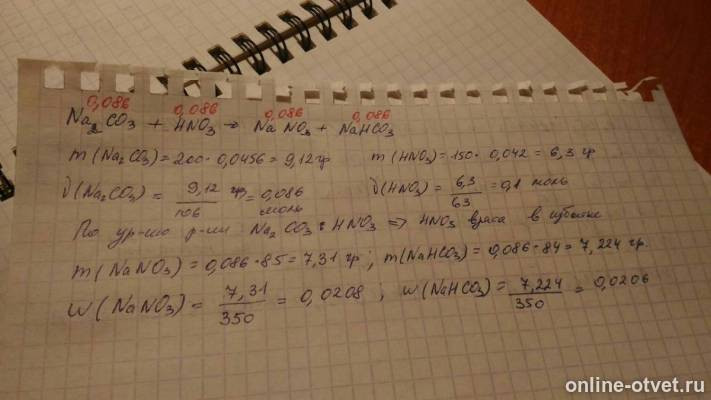 0,086 0,086 0,086 0,086
Na2CO3 + HNO3 → NaNO3 + NaHCO3
m(Na2CO3) = 200·0,0456 = 9,12 гр m(HNO3) = 150·0,042 = 6,3 гр
ν(Na2CO3) = 9,12 гр/106 = 0,086 моль ν(HNO3) = 6,3/63 = 0,1 моль
По ур-ию р-ии Na2CO3 : HNO3 => HNO3 взята в избытке
m(NaNO3) = 0,086·85 = 7,31 гр; m(NaHCO3) = 0,086·84 = 7,224 гр.
w(NaNO3) = 7,31/350 = 0,0208; w(NaHCO3) = 7,224/350 = 0,0206
online-otvet.ru